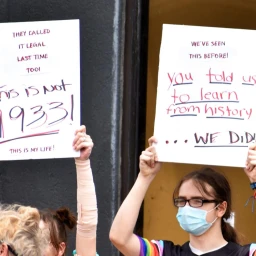 THEY CALLED
IT LEGAL
LAST TIME
TOO!
THIS IS NOT
1933!
THIS IS MY LIFE!
WE'VE SEEN
THIS BEFORE!
you told us
to learn
from history
...WE DID